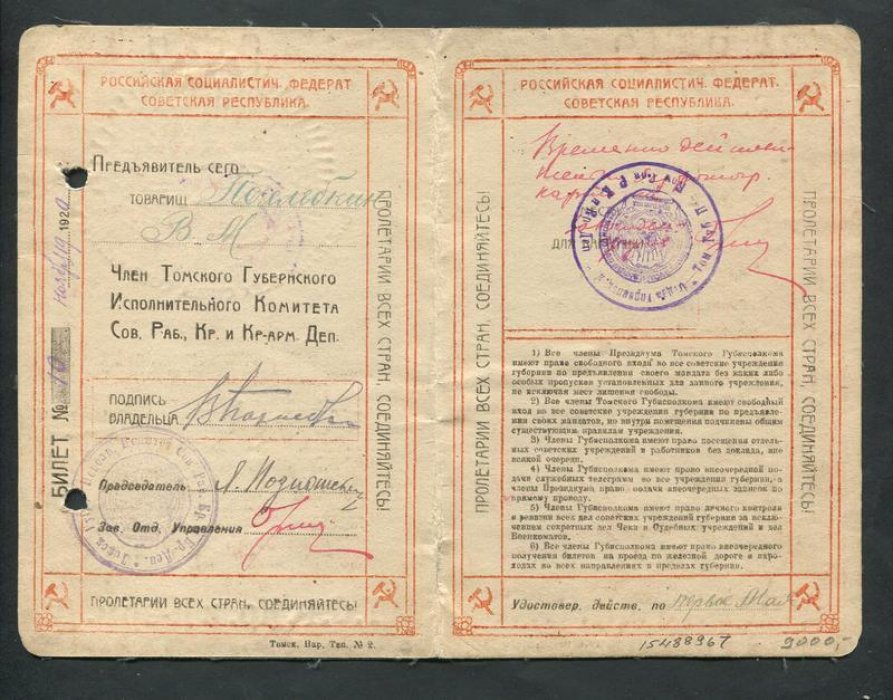 РОССИЙСКАЯ СОЦИАЛИСТИЧ. ФЕДЕРАТ
СОВЕТСКАЯ РЕСПУБЛИКА.
Предъявитель сего
товарищ Похлебкин
В М
Член Томского Губернского
Исполнительного Комитета
Сов. Раб., Кр. и Кр-арм. Деп.
подпись
владельца
Председатель
Зав. Отд. Управления
ПРОЛЕТАРИИ ВСЕХ СТРАН, СОЕДИНЯЙТЕСЬ!
БИЛЕТ № 10 ноября 1920
ПРОЛЕТАРИИ ВСЕХ СТРАН, СОЕДИНЯЙТЕСЬ!
Томск, Нар. Тип. № 2.
РОССИЙСКАЯ СОЦИАЛИСТИЧ. ФЕДЕРАТ.
СОВЕТСКАЯ РЕСПУБЛИКА.
Временно действи
для
ПРОЛЕТАРИИ ВСЕХ СТРАН, СОЕДИНЯЙТЕСЬ!
ПРОЛЕТАРИИ ВСЕХ СТРАН, СОЕДИНЯЙТЕСЬ!
1) Все члены Президиума Томского Губисполкома
имеют право свободного входа во все советские учреждения
губернии по предъявлении своего мандата без каких либо
особых пропусков установленных для данного учреждения,
не исключая мест лишения свободы.
2) Все члены Томского Губисполкома имеют свободный
вход во все советские учреждения губернии по предъявле
нии своих мандатов, но внутри помещения подчинены общим
существующим правилам учреждений.
3) Члены Губисполкома имеют право посещения отдель
ных советских учреждений и работников без доклада, вне
всякой очереди.
4) Члены Губисполкома имеют право внеочередной по
дачи служебных телеграмм во все учреждения губернии, а
члены Президиума право подачи внеочередных записок по
прямому проводу.
5) Члены Губисполкома имеют право личного контроля
и ревизии всех дел советских учреждений губернии за исклю
чением секретных дел Чека и Судебных учреждений и дел
Военкоматов.
6) Все члены Губисполкома имеют право внеочередного
получения билетов на проезд по железной дороге и паро
ходах во всех направлениях в пределах губернии.
Удостовер. действ. по первое Мая
15488967 9000,-